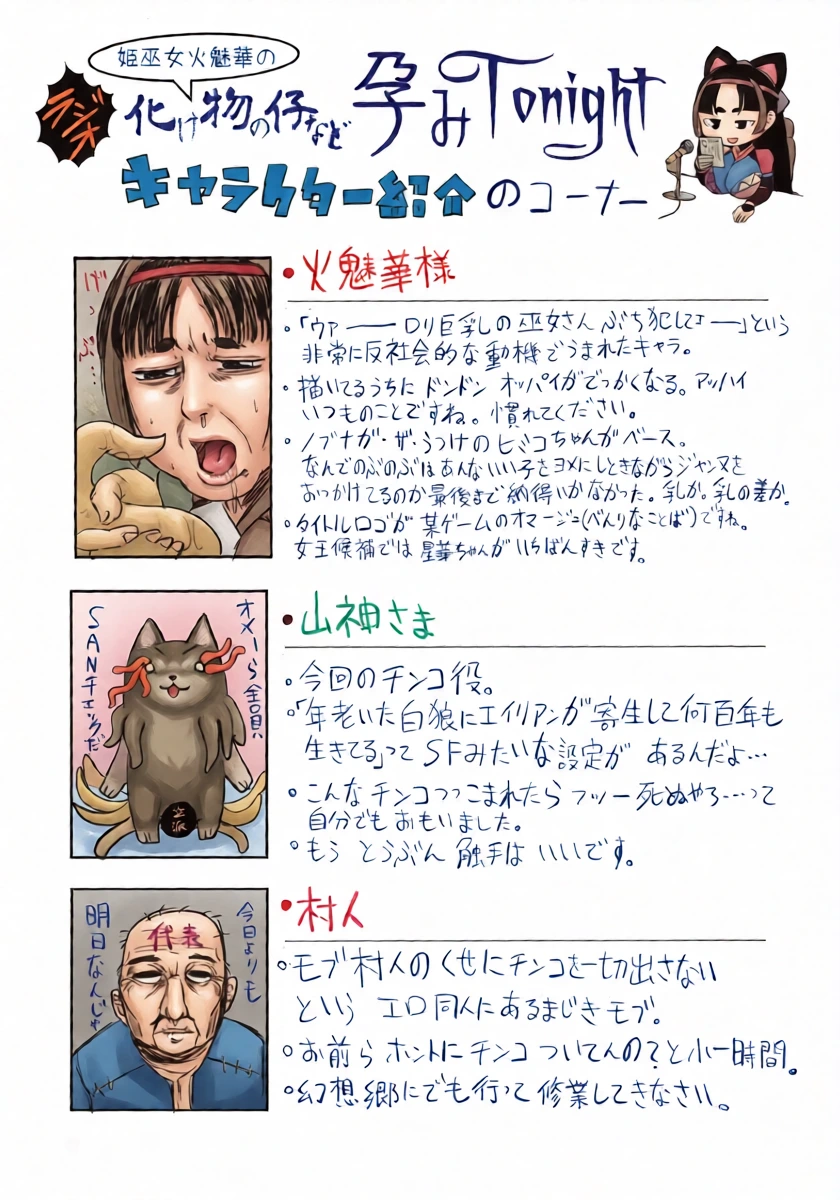 姫巫女火魅華の
ラジオ
化け物の仔など
孕みTonight
キャラクター紹介のコーナー
げっぷ…
・火魅華様
・「ウァーーロリ巨乳の巫女さんぶち犯してぇーー」という
非常に反社会的な動機でうまれたキャラ。
・描いてるうちにドンドンオッパイがでっかくなる。アッハイ
いつものことですね。慣れてください。
・ノブナガ・ザ・うつけのヒミコちゃんがベース。
なんでのぶのぶはあんないい子をヨメにしときながらジャンヌを
おっかけてるのか最後まで納得いかなかった。乳か。乳の差か。
・タイトルロゴが某ゲームのオマージュ(べんりなことば)ですね。
女王候補では星華ちゃんがいちばんすきです。
オメーら全員
SANチェックだ
立派
・山神さま
・今回のチンコ役。
・「年老いた白狼にエイリアンが寄生して何百年も
生きてる」ってSFみたいな設定があるんだよ…
・こんなチンコつっこまれたらフツー死ぬやろ…って
自分でもおもいました。
・もうとうぶん触手はいいです。
今日よりも
明日なんじゃ
代表
・村人
・モブ村人のくせにチンコを一切出さない
というエロ同人にあるまじきモブ。
・お前らホントにチンコついてんの?と小一時間。
・幻想郷にでも行って修業してきなさい。